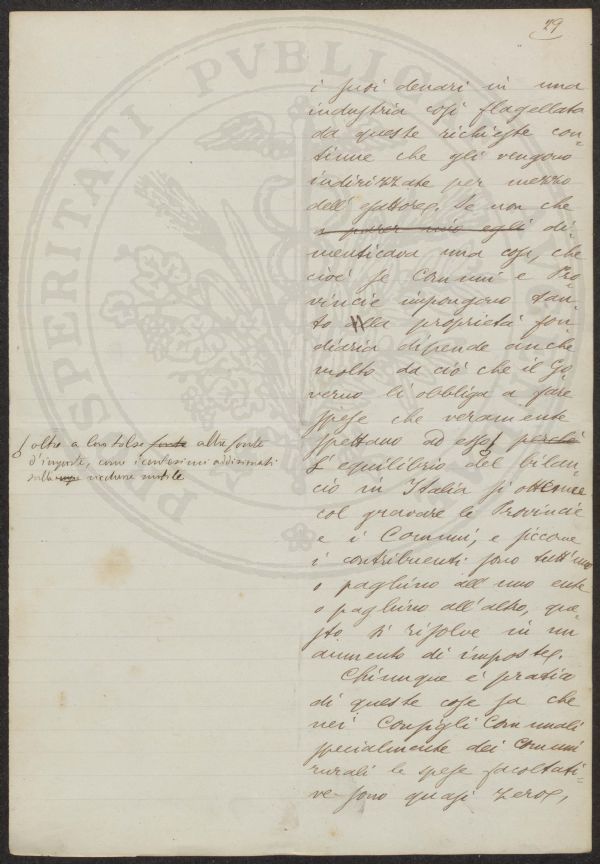 29
i suoi denari in una
industria così flagellata
da queste richieste con-
tinue che gli vengono
indirizzate per mezzo
dell' esattore. Se non che
a parer mio egli di-
menticava una cosa, che
cioè se Comuni e Pro-
vincie impongono tan-
to alla proprietà fon-
diaria dipende anche
molto da ciò che il Go-
verno li obbliga a fare
spese che veramente
spettano ad esso perché
L' equilibrio del bilan-
cio in Italia si ottenne
col gravare le Provincie
e i Comuni, e siccome
i contribuenti sono tutt'uno
o paghino all' uno ente
o paghino all' altro, que-
sto si risolve in un
aumento di imposte.
Chiunque è pratico
di queste cose sa che
nei Consigli Comunali
specialmente dei Comuni
rurali le spese facoltati-
ve sono quasi zero,
oltre a loro tolse fonte altre fonte
d'imposte, come i centesimi addizionali
sulla ricchezza mobile
PROSPERITATI PVBLICAE